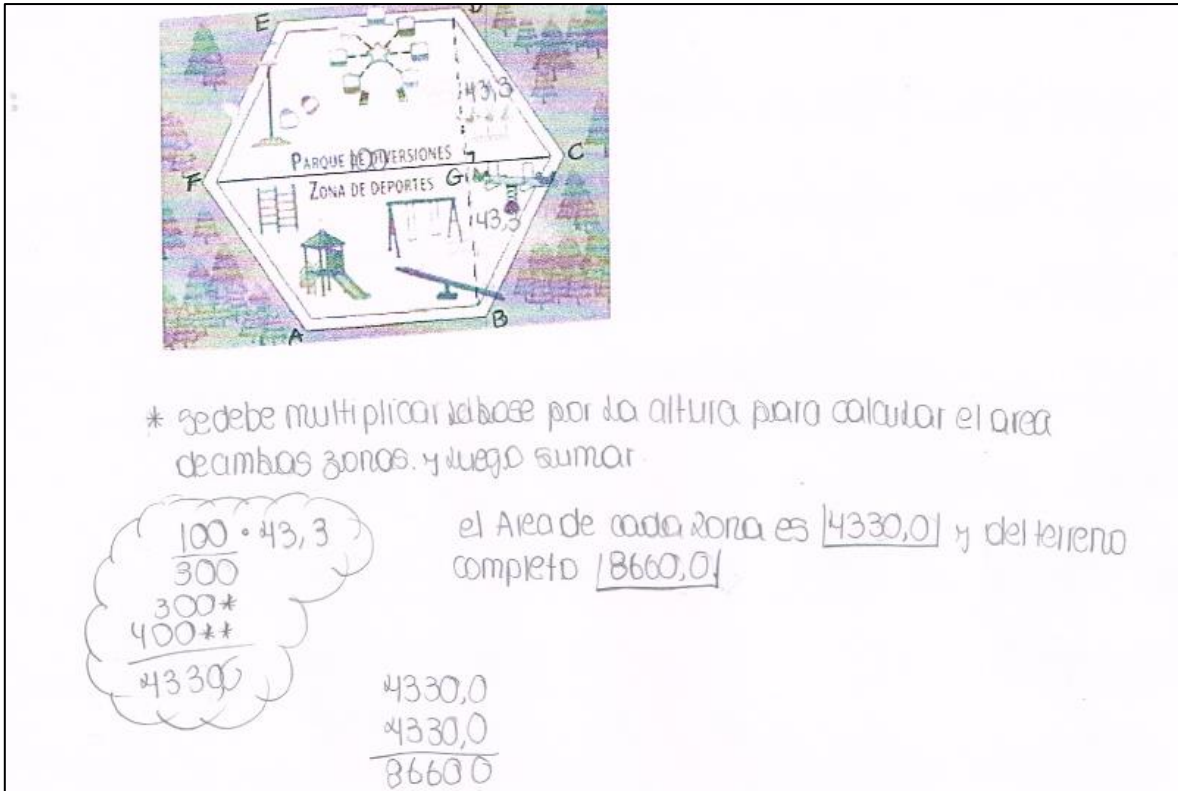 E
D
43,3
PARQUE DE DIVERSIONES
100
C
F
ZONA DE DEPORTES
G
43,3
B
A
* se debe multiplicar la base por la altura para calcular el area
de ambas zonas. y luego sumar
100 • 43,3
300
300*
400**
4330,0
el Area de cada zona es 4330,0 y del terreno
completo 8660,0
4330,0
4330,0
86600